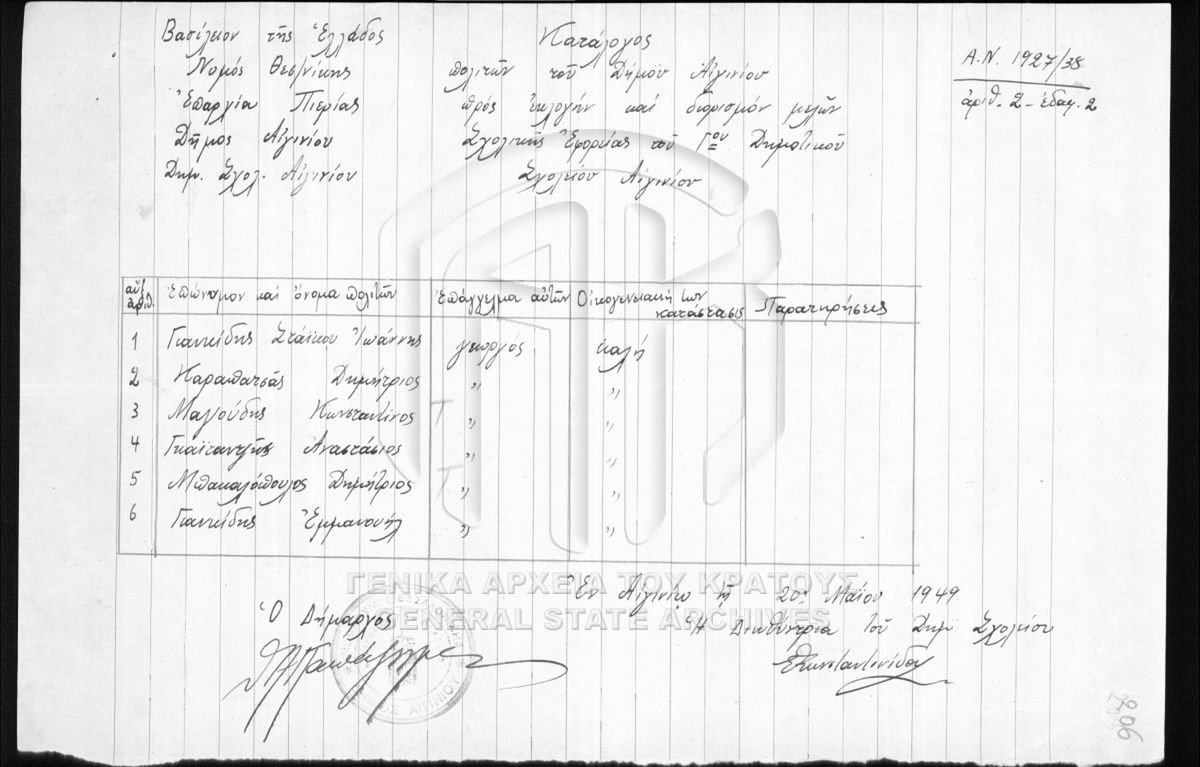 Βασίλειον τῆς Ἑλλάδος
Νομός Θεσ/νίκης
Ἐπαρχία Πιερίας
Δῆμος Αἰγινίου
Δημ. Σχολ. Αἰγινίου
Κατάλογος
πολιτῶν τοῦ Δήμου Αἰγινίου
πρός ἐκλογήν καί διορισμόν μελῶν
Σχολικῆς Ἐφορείας τοῦ Γου Δημοτικοῦ
Σχολείου Αἰγινίου
Α.Ν. 1927/38
ἀριθ. 2 - ἐδαφ. 2
αὔξ. ἀριθ. Ἐπώνυμον καί ὄνομα πολιτῶν Ἐπάγγελμα αὐτῶν Οἰκογενειακή των κατάστασις Παρατηρήσεις
1 Γιαννίδης Στάϊκου Ἰωάννης γεωργός καλή
2 Καραπατσᾶς Δημήτριος " "
3 Μαγούδης Κωνσταντῖνος " "
4 Γκαϊτατζῆς Ἀναστάσιος " "
5 Μπακαλόπουλος Δημήτριος " "
6 Γιαννίδης Ἐμμανουήλ " "
ΓΕΝΙΚΑ ΑΡΧΕΙΑ ΤΟΥ ΚΡΑΤΟΥΣ
GENERAL STATE ARCHIVES
Ἐν Αἰγινίῳ τῇ 20 Μαΐου 1949
Ὁ Δήμαρχος
Ἡ Διευθύντρια τοῦ Δημ Σχολείου
Κωνσταντινίδου
ΑΙΓΙΝΙΟΥ
206